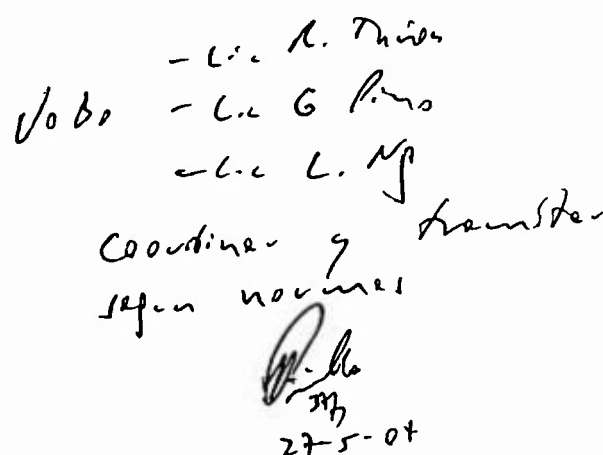 - Lic R.
VoBo - Lic G Pino
- Lic L. Ng
Coordinar y tramitar
segun normas
27-5-04